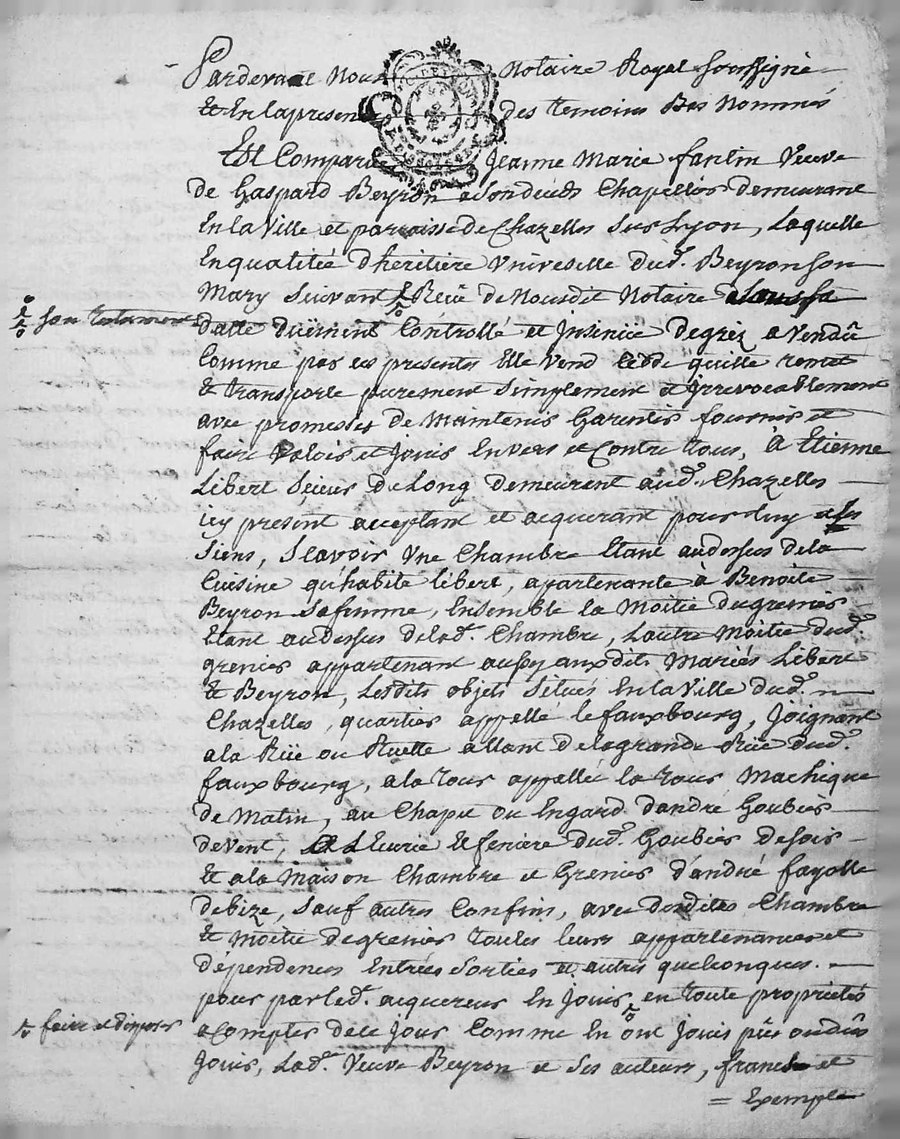 Pardevant Nous Notaire Royal soussigné
Et En la presence des temoins Bas Nommés
Est Comparue Jeanne Marie fantin Veuve
de Gaspard Beyron demeurant
En la Ville et parroisse de Chazelles sur Lyon, Laquelle
En qualitée d'heritiere Universelle dud. Beyron son
Mary Suivant Receu de Nousdit Notaire
son testament
datte düement Controllé et Insinué degrez a Vendu
Comme par ces presentes Elle Vend Cedde quitte remet
Et transporte purement Simplement et Irrevocablement
avec promesses de Maintenir Garentir fournir et
faire Valoir et Jouir Envers et Contre tous, à Etienne
Libert Sieur de Long demeurent aud. Chazelles
icy present acceptant et acquerant pour Luy et les
Siens, Scavoir Une Chambre Etant audessus dela
Cuisine qu'habite Libert, appartenante à Benoite
Beyron Safemme, Ensemble la Moitié dugrenier
Etant audessus delad. Chambre, Lautre Moitié dud.
grenier appartenant aussy auxdits Mariés Libert
Et Beyron, Lesdits objets Situés En la Ville dud.
Chazelles, quartier appellé le fauxbourg, Joignant
a la Rüe ou Ruelle allant de lagrande Rüe dud.
fauxbourg, a la tour appellée la tour Machique
de Matin, au Chapit ou Engard d'andré Goubier
de Vent, Ecurie Et feniere dud. Goubier de soir
Et a la Maison Chambre et Grenier d'andré fayolle
de bize, Sauf autres Confins, avec desdites Chambre
Et Moitié de grenier toutes leurs appartenances et
dépendences Entrées Sorties et autres quelconques.
pour par led. acquereur En Jouir, en toute proprietés
faire et disposer
a Compter de ce jour Comme En ont Jouis pûe ou dû
Jouir, Lad. Veuve Beyron et Ses auteurs, et
= Exempte